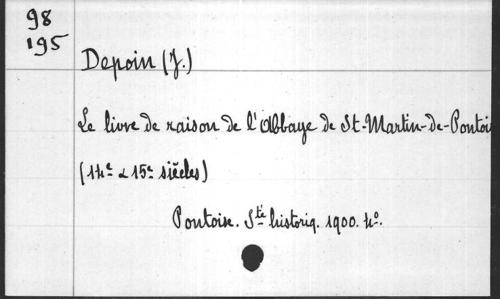 98
195
Depoin (J.)
Le livre de raison de l'Abbaye de St-Martin-de-Pontoi
(14e & 15e siècles)
Pontoise. Sté historiq. 1900. 4o.